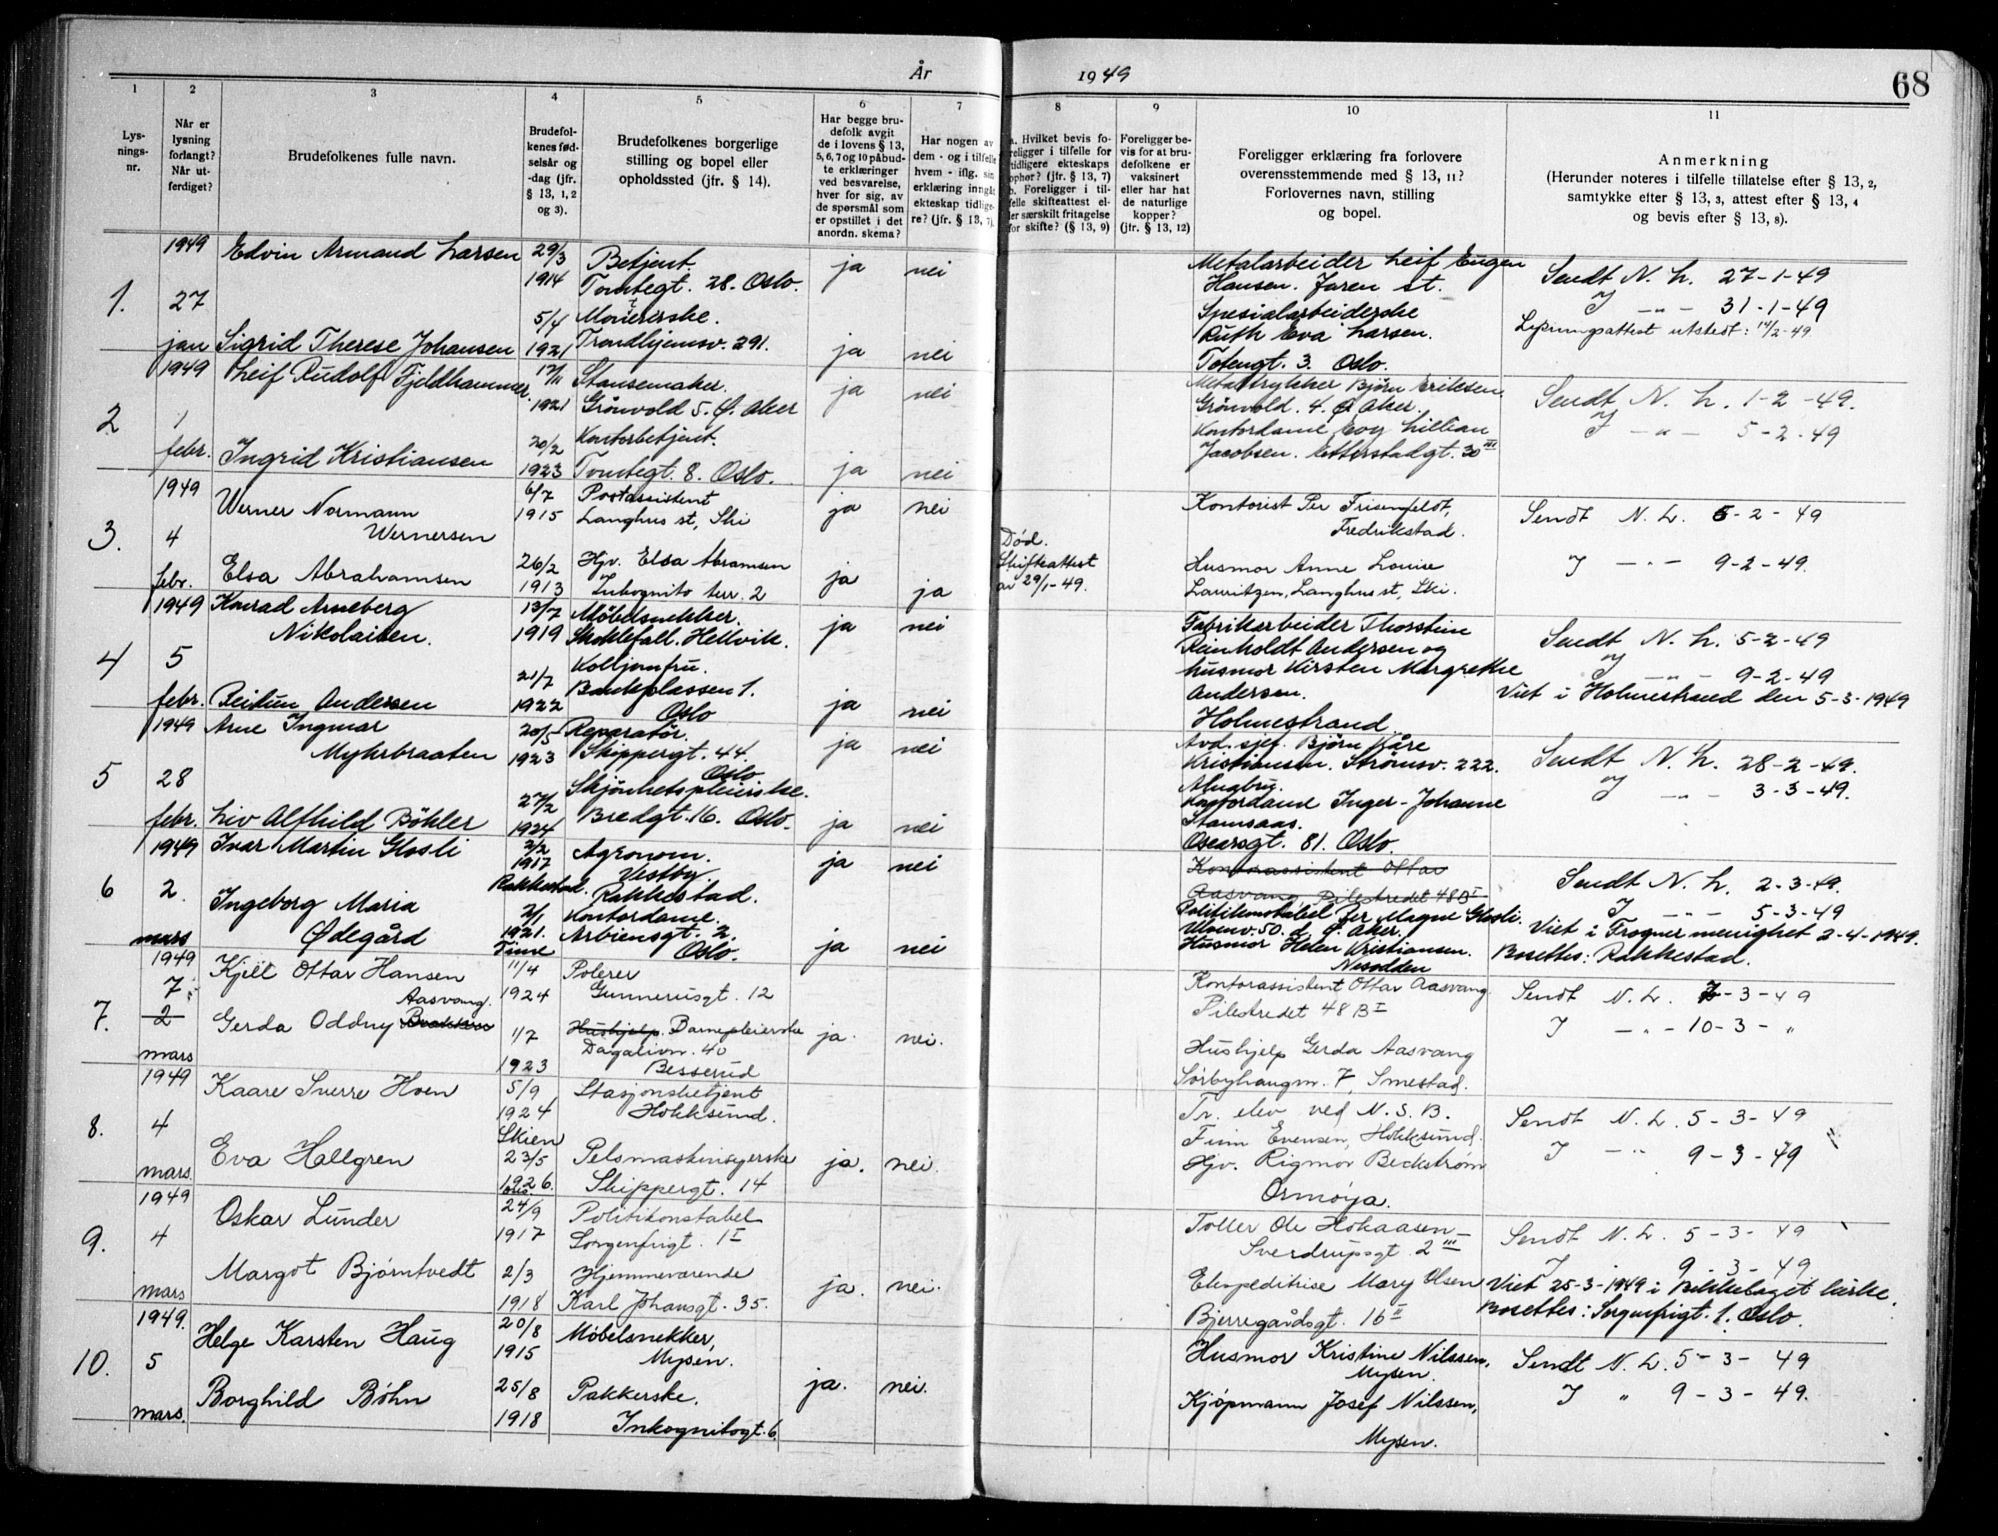 År 1949
68
1
2
3
4
5
6
7
8
9
10
11
Lys-
nings-
nr.
Når er
lysning
forlangt?
Når ut-
ferdiget?
Brudefolkenes fulle navn.
Brudefol-
kenes fød-
selsår og
-dag (jfr.
§ 13, 1, 2
og 3).
Brudefolkenes borgerlige
stilling og bopel eller
opholdssted (jfr. § 14).
Har begge bru-
defolk avgit
de i lovens § 13,
5, 6, 7 og 10 påbud-
te erklæringer
ved besvarelse,
hver for sig, av
de spørsmål som
er opstillet i det
anordn. skema?
Har nogen av
dem - og i tilfelle
hvem - iflg. sin
erklæring inngåt
ekteskap tidlige-
re? (jfr. § 13, 7).
a. Hvilket bevis fo-
religger i tilfelle for
tidligere ekteskaps
ophør? (jfr. § 13, 7)
b. Foreligger i til-
felle skifteattest el-
ler særskilt fritagelse
for skifte? (§ 13, 9)
Foreligger be-
vis for at bru-
defolkene er
vaksinert
eller har hat
de naturlige
kopper?
(jfr. § 13, 12)
Foreligger erklæring fra forlovere
overensstemmende med § 13, 11?
Forlovernes navn, stilling
og bopel.
Anmerkning
(Herunder noteres i tilfelle tillatelse efter § 13, 2,
samtykke efter § 13, 3, attest efter § 13, 4
og bevis efter § 13, 8).
1.
1949
27
jan
Edvin Armand Larsen
29/3
1914
Betjent.
Tomtegt. 28. Oslo.
ja
nei
Sigrid Therese Johansen
5/4
1921
Trondhjemsv. 291.
ja
nei
Metalarbeider Leif Eugen
Hansen. Jaren st.
Spesialarbeiderske
Ruth Eva Larsen.
Totengt. 3. Oslo.
Sendt N. L. 27-1-49
J — " — 31-1-49
Lysningsattest utstedt: 14/2-49
2
1949
1
febr.
Leif Rudolf Fjeldhammer
1921
Stansemaker.
Grönvold 5. Ø. Aker
ja
nei
Ingrid Kristiansen
20/2
1923
Kontorbetjent.
Tomtegt. 8. Oslo.
ja
nei
Metaltrykker Björn Eriksen
Grönvold. 4. Ø Aker.
Kontordame Evy Lillian
Jacobsen. Etterstadgt. 30 III
Sendt N. L. 1-2-49.
J — " — 5-2-49
3.
1949
4
febr.
Werner Normann
Wernersen
6/7
1915
Postassistent
Langhus st, Ski
ja
nei
Elsa Abrahamsen
26/2
1913
Hjv. Elsa Abramsen
Inkognito terr. 2
ja
ja
Død.
Skifteattest
av 29/1-49.
Kontorist Per Frisenfeldt,
Fredrikstad.
Husmor Anne Louise
Lauritzen, Langhus st, Ski.
Sendt N. L. 5-2-49
J — " — 9-2-49.
4
1949
5
febr.
Konrad Arneberg
Nikolaisen.
13/7
1919
Møbelsnekker.
Skoklefall. Hellvik.
ja
nei
Reidun Andersen
21/7
1922
Kolljomfru.
Bankplassen 1.
Oslo
ja
nei
Fabrikarbeider Thorstein
Reinholdt Andersen og
husmor Kirsten Margrethe
Andersen.
Holmestrand
Sendt N. L. 5-2-49
J — " — 9-2-49
Viet i Holmestrand den 5-3-1949
5
1949
28
febr.
Arne Ingmar
Myhrbraaten
20/5
1923
Reparatör.
Skippergt. 44.
Oslo
ja
nei
Liv Alfhild Böhler
27/2
1924
Skjönhetspleierske.
Bredgt. 16. Oslo.
ja
nei
Avd. sjef. Björn Kåre
Kristiansen. Strömsv. 222.
Alnabru.
Kontordame Inger-Johanne
Stamsaas.
Oscarsgt. 81. Oslo.
Sendt N. L. 28-2-49.
J — " — 3-3-49.
6
1949
2.
mars
Ivar Martin Glosli
2/2
1917
Rakkestad.
Agronom.
Vestby.
Rakkestad.
ja
nei
Ingeborg Maria
Ødegård
2/1
1921.
Time
Kontordame.
Arbiensgt. 2.
Oslo.
ja
nei
Kontorassistent Ottar
Aasvang Pilestredet 48 B I
Politikonstabel Per Magne Glosli.
Ulvenv. 50. d. Ø. Aker.
Husmor Helen Kristiansen.
Nesodden
Sendt N. L. 2-3-49.
J — " — 5-3-49
Viet i Frogner menighet 2-4-1949.
Bosettes: Rakkestad.
7.
1949
7
2
mars
Kjell Ottar Hansen
11/4
1924
Polerer
Gunnerusgt. 12
Aasvang
Gerda Oddny
1/7
1923
Hushjelp. Barnepleierske
Dagalivn. 40
Besserud
ja.
nei.
Kontorassistent Ottar Aasvang
Pilestredet 48 B I
Hushjelp Gerda Aasvang
Sörbyhaugm. 7, Smestad.
Sendt N. L. 7-3-49
J — " — 10-3- "
8.
1949
4
mars
Kaare Sverre Hoen
5/9
1924
Skien
Stasjonsbetjent
Hokksund.
Eva Hallgren
23/5
1926.
Oslo
Pelsmaskinsyerske
Skippergt. 14
ja.
nei.
Tr. elev ved N. S. B.
Finn Evensen, Hokksund.
Hjv. Rigmor Beckstrøm
Ormøya.
Sendt N. L. 5-3-49
J — " 9-3-49
9.
1949
4
mars
Oskar Lunder
24/9
1917
Politikonstabel
Sorgenfrigt. 1 I
Margot Bjørntvedt
2/3
1918
Hjemmeværende
Karl Johansgt. 35.
ja.
nei.
Toller Ole Hokaasen
Sverdrupsgt. 2 III
Ekspeditrise Mary Olsen
Bjerregårdsgt. 16 II
Sendt N. L. 5-3-49
J 9-3-49
Viet 25-3-1949 i Bekkelaget kirke.
Bosettes: Sorgenfrigt. 1. Oslo.
10.
1949.
5
mars.
Helge Karsten Haug
20/8
1915
Møbelsnekker,
Mysen.
Borghild Bøhn
25/8
1918
Pakkerske.
Inkognitogt. 6.
ja.
nei.
Husmor Kristine Nilssen,
Mysen.
Kjøpmann Josef Nilssen,
Mysen.
Sendt N. L. 5-3-49
J " 9-3-49.